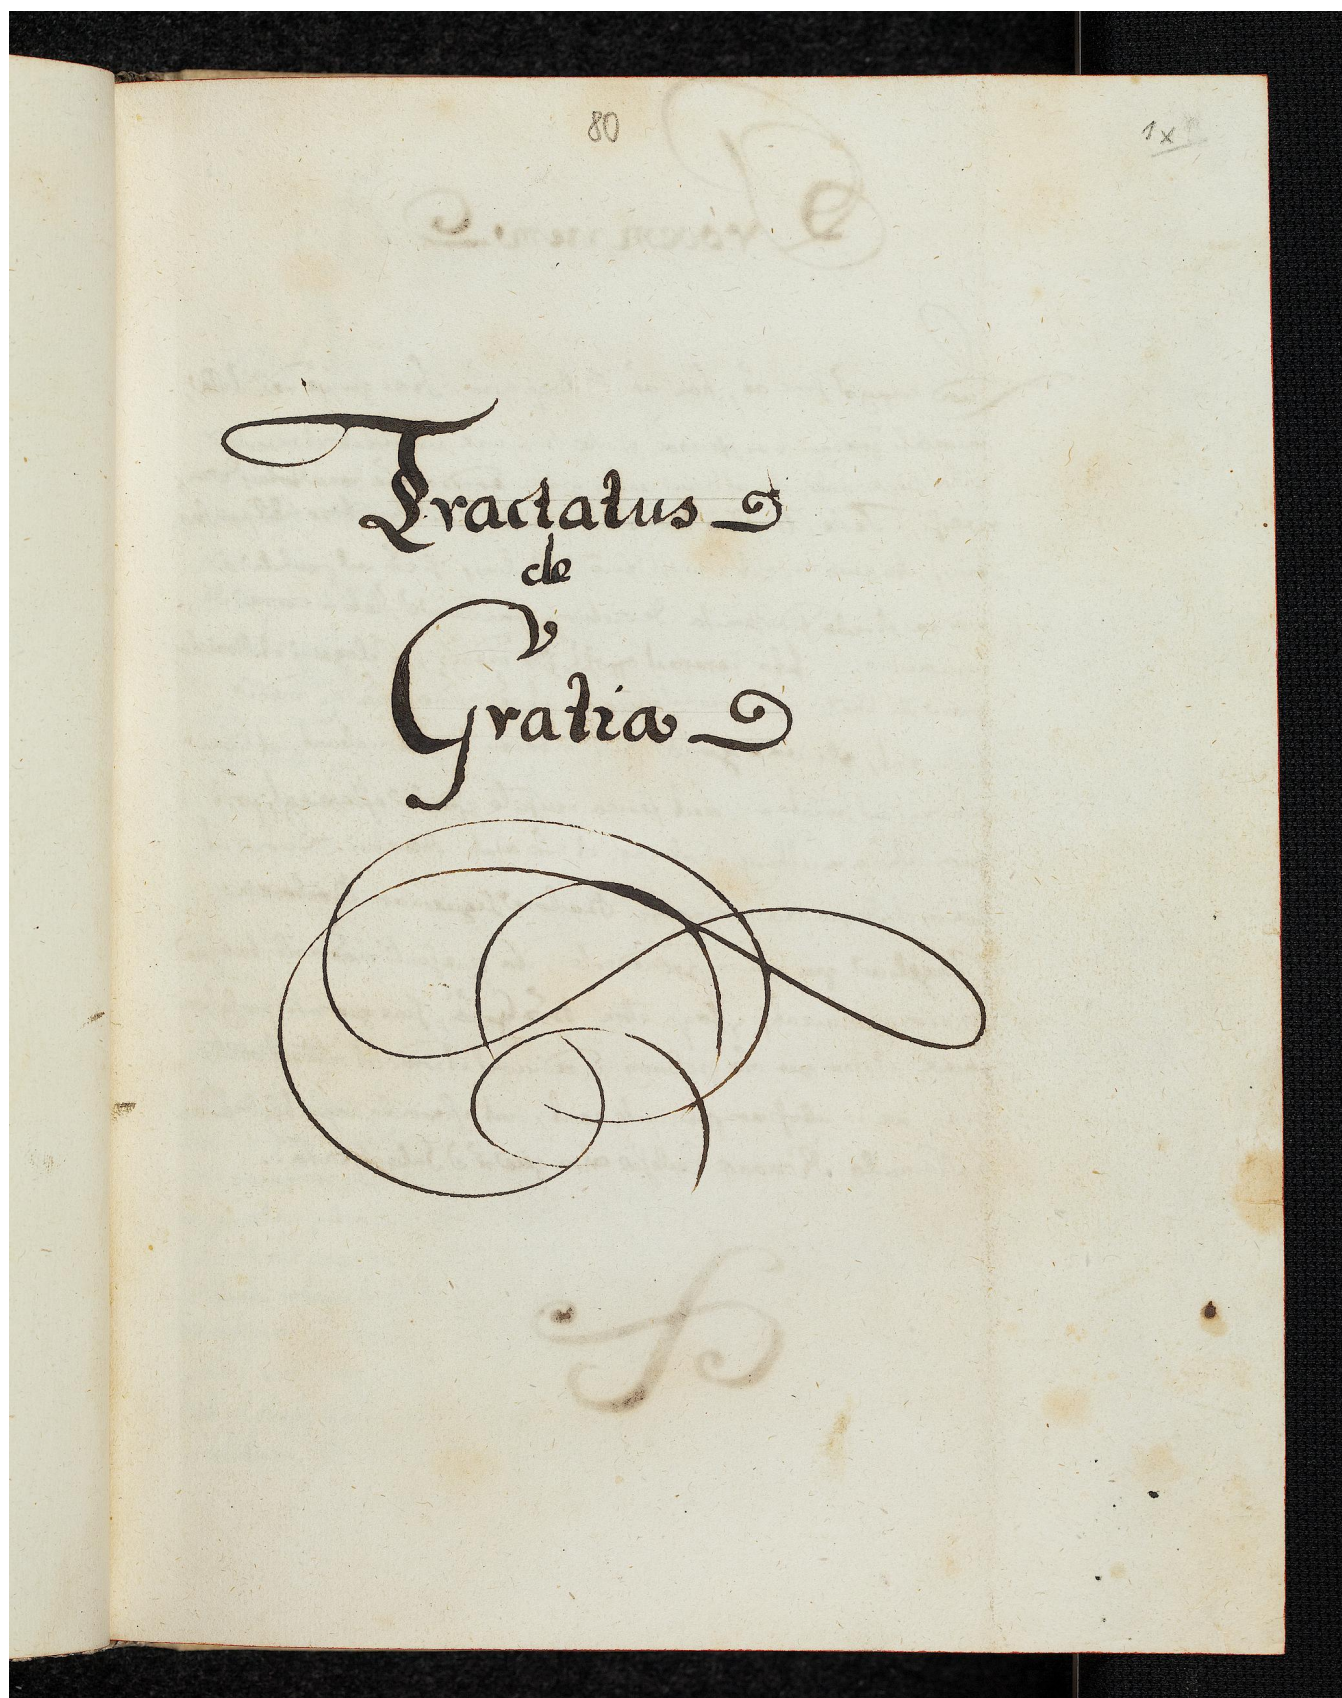 80
1x
Tractatus
de
Gratia